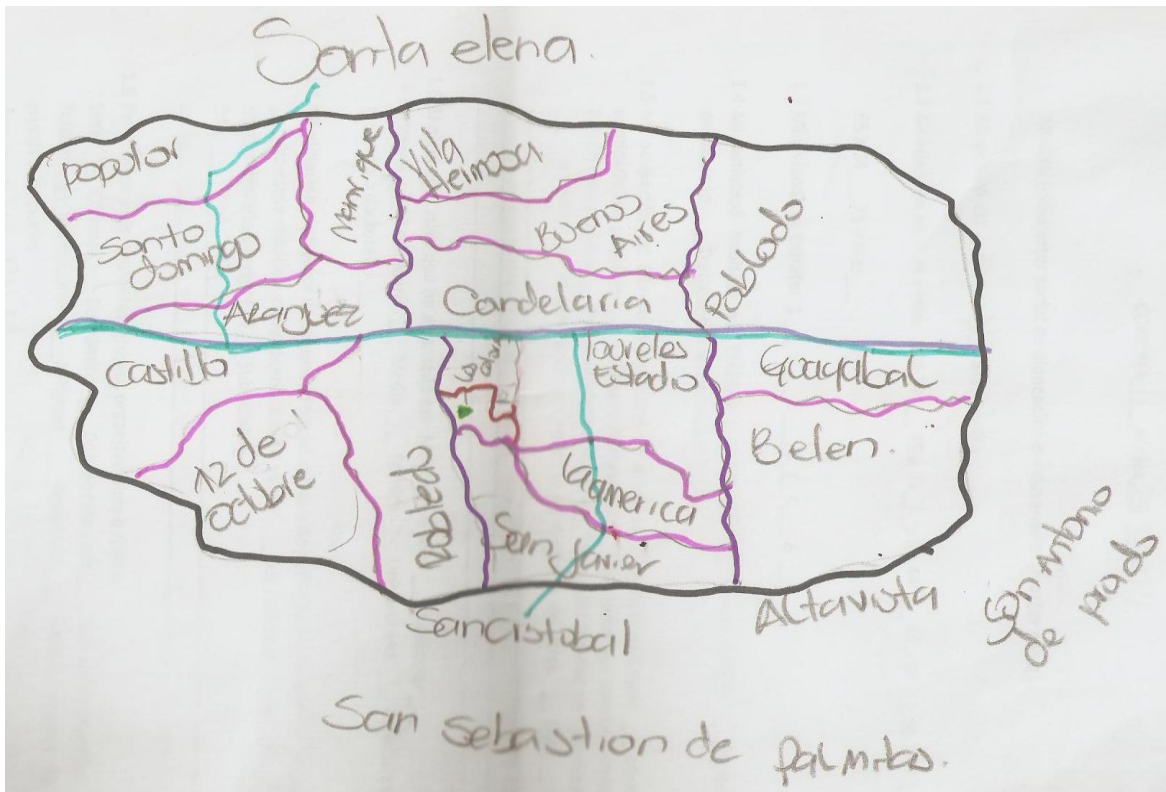 Santa elena.
popular
Manrique
Villa
Hermosa
Santo
domingo
Buenos
Aires
Poblado
Aranguez
Candelaria
Castilla
laureles
Estadio
Guayabal
12 de
octubre
Robledo
Belen.
La america
San Javier
San cristobal
Altavista
San Antonio
de prado
San Sebastian de palmitas.